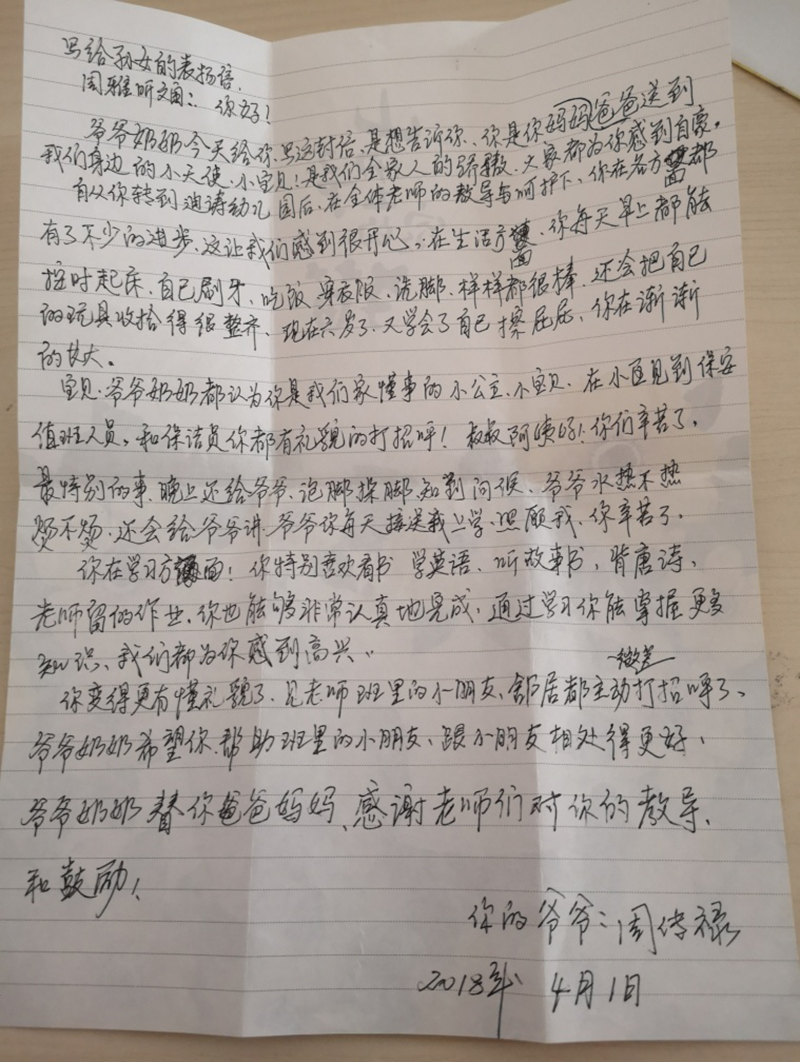 写给孙女的表扬信.
周雅昕涵:你好!
爷爷奶奶今天给你写这封信、是想告诉你、你是你妈妈爸爸送到
我们身边的小天使、小宝贝!是我们全家人的骄傲、大家都为你感到自豪。
自从你转到迪诗幼儿园后、在全体老师的教导与呵护下、你在各方面都
有了不少的进步、这让我们感到很开心、在生活方面、你每天早上都能
按时起床、自己刷牙、吃饭 穿衣服、洗脚、样样都很棒、还会把自己
的玩具收拾得很整齐、现在六岁了、又学会了自己擦屁屁、你在渐渐
的长大。
宝贝、爷爷奶奶都认为你是我们家懂事的小公主、小宝贝、在小区见到保安
值班人员、和保洁员你都有礼貌的打招呼!叔叔阿姨好!你们辛苦了、
最特别的事、晚上还给爷爷、泡脚揉脚、知到问候、爷爷水热不热
烫不烫、还会给爷爷讲、爷爷你每天接送我上学、照顾我、你辛苦了.
你在学习方面!你特别喜欢看书 学英语、听故事书、背唐诗、
老师留的作业、你也能够非常认真地完成、通过学习你能掌握更多
知识、我们都为你感到高兴..
你变得更有懂礼貌了、见老师班里的小朋友、邻居都微笑主动打招呼了、
爷爷奶奶希望你、帮助班里的小朋友、跟小朋友相处得更好、
爷爷奶奶替你爸爸妈妈、感谢老师们对你的教导、
和鼓励!
你的爷爷:周传禄
2018年 4月1日